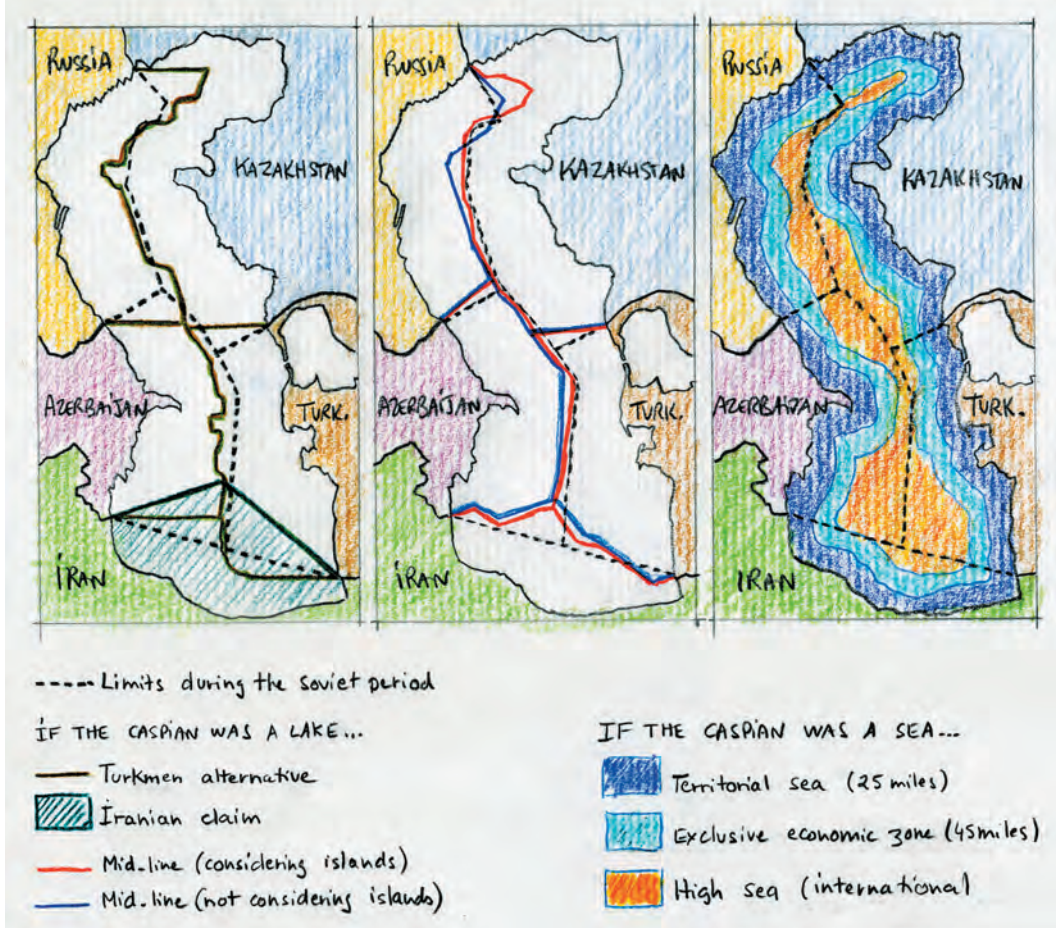 RUSSIA
KAZAKHSTAN
AZERBAIJAN
TURK.
İRAN
RUSSIA
KAZAKHSTAN
AZERBAIJAN
TURK.
İRAN
RUSSİA
KAZAKHSTAN
AZERBAIJAN
TURK.
IRAN
Limits during the soviet period
İF THE CASPIAN WAS A LAKE...
Turkmen alternative
İranian claim
Mid-line (considering islands)
Mid-line (not considering islands)
IF THE CASPIAN WAS A SEA...
Territorial sea (25 miles)
Exclusive economic zone (45 miles)
High sea (international